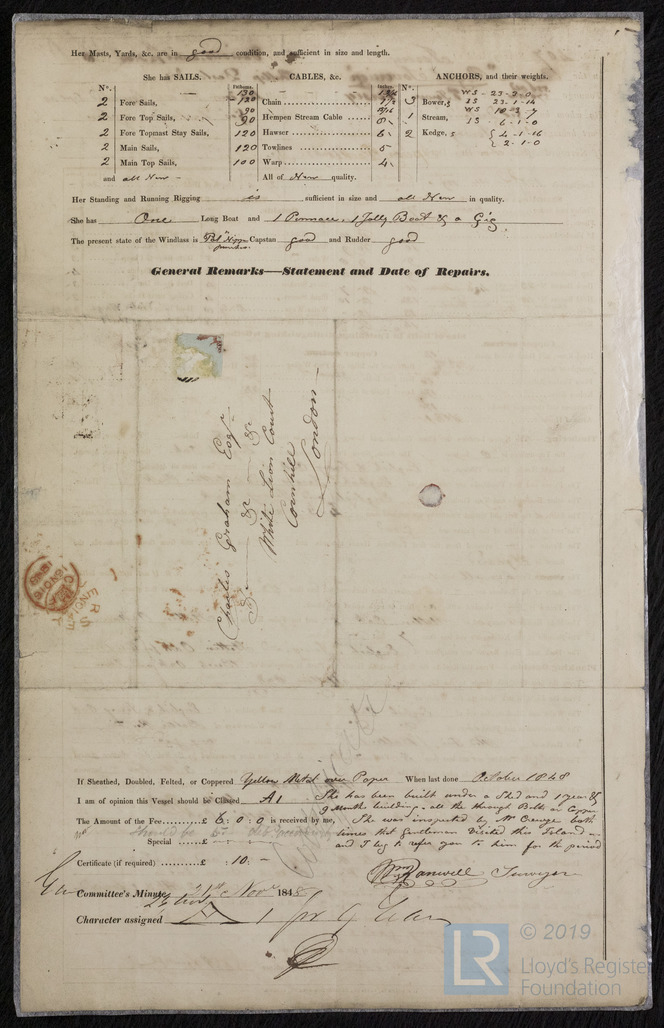 Her Masts, Yards, &c. are in good condition, and sufficient in size and length.
She has SAILS. CABLES, &c. ANCHORS, and their weights.
N°. Fathoms. Inches. N°.
2 Fore Sails, 130 120 Chain
3 Bower,s WS - 23 - 2 - 0
IS 23 - 1 - 14
2 Fore Top Sails, 90 90 Hempen Stream Cable 8
1 Stream, IS - 6 - 1 - 0
2 Fore Topmast Stay Sails, 120 Hawser 6
2 Kedge,s { 4 - 1 - 16
{ 2 - 1 - 0
2 Main Sails, 120 Towlines 5
2 Main Top Sails, 100 Warp 4
and all New - All of New quality.
Her Standing and Running Rigging is sufficient in size and all New in quality.
She has One Long Boat and 1 Pinnace, 1 Jolly Boat & a Gig
The present state of the Windlass is Capstan good and Rudder good
General Remarks—Statement and Date of Repairs.
Charles Graham Esqr
&c &c
White Lion Court
Cornhill
London
If Sheathed, Doubled, Felted, or Coppered Yellow Metal over Paper When last done October 1848
I am of opinion this Vessel should be Classed A1 She has been built under a Shed and 1 year &
9 Months building, all the through Bolts are Copper
The Amount of the Fee......£ 6 : 0 : 0 is received by me, She was inspected by Mr Creuze both
times that Gentleman Visited this Island
Special ......£
and I beg to refer you to him for the period
Certificate (if required) ..........£ : 10 : -
Wm Ranwell Surveyor
Committee's Minute 21st Novr 1848
Character assigned A 1 for 9 Years
© 2019
LR
Lloyd's Register
Foundation